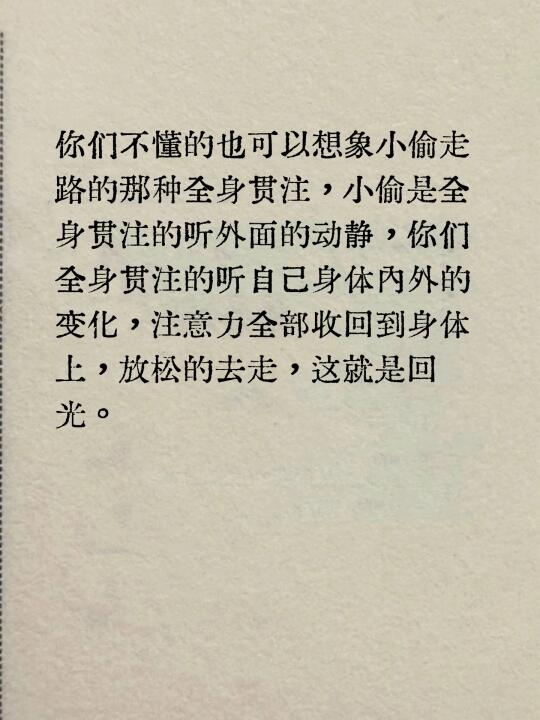 你们不懂的也可以想象小偷走
路的那种全身贯注，小偷是全
身贯注的听外面的动静，你们
全身贯注的听自己身体内外的
变化，注意力全部收回到身体
上，放松的去走，这就是回
光。